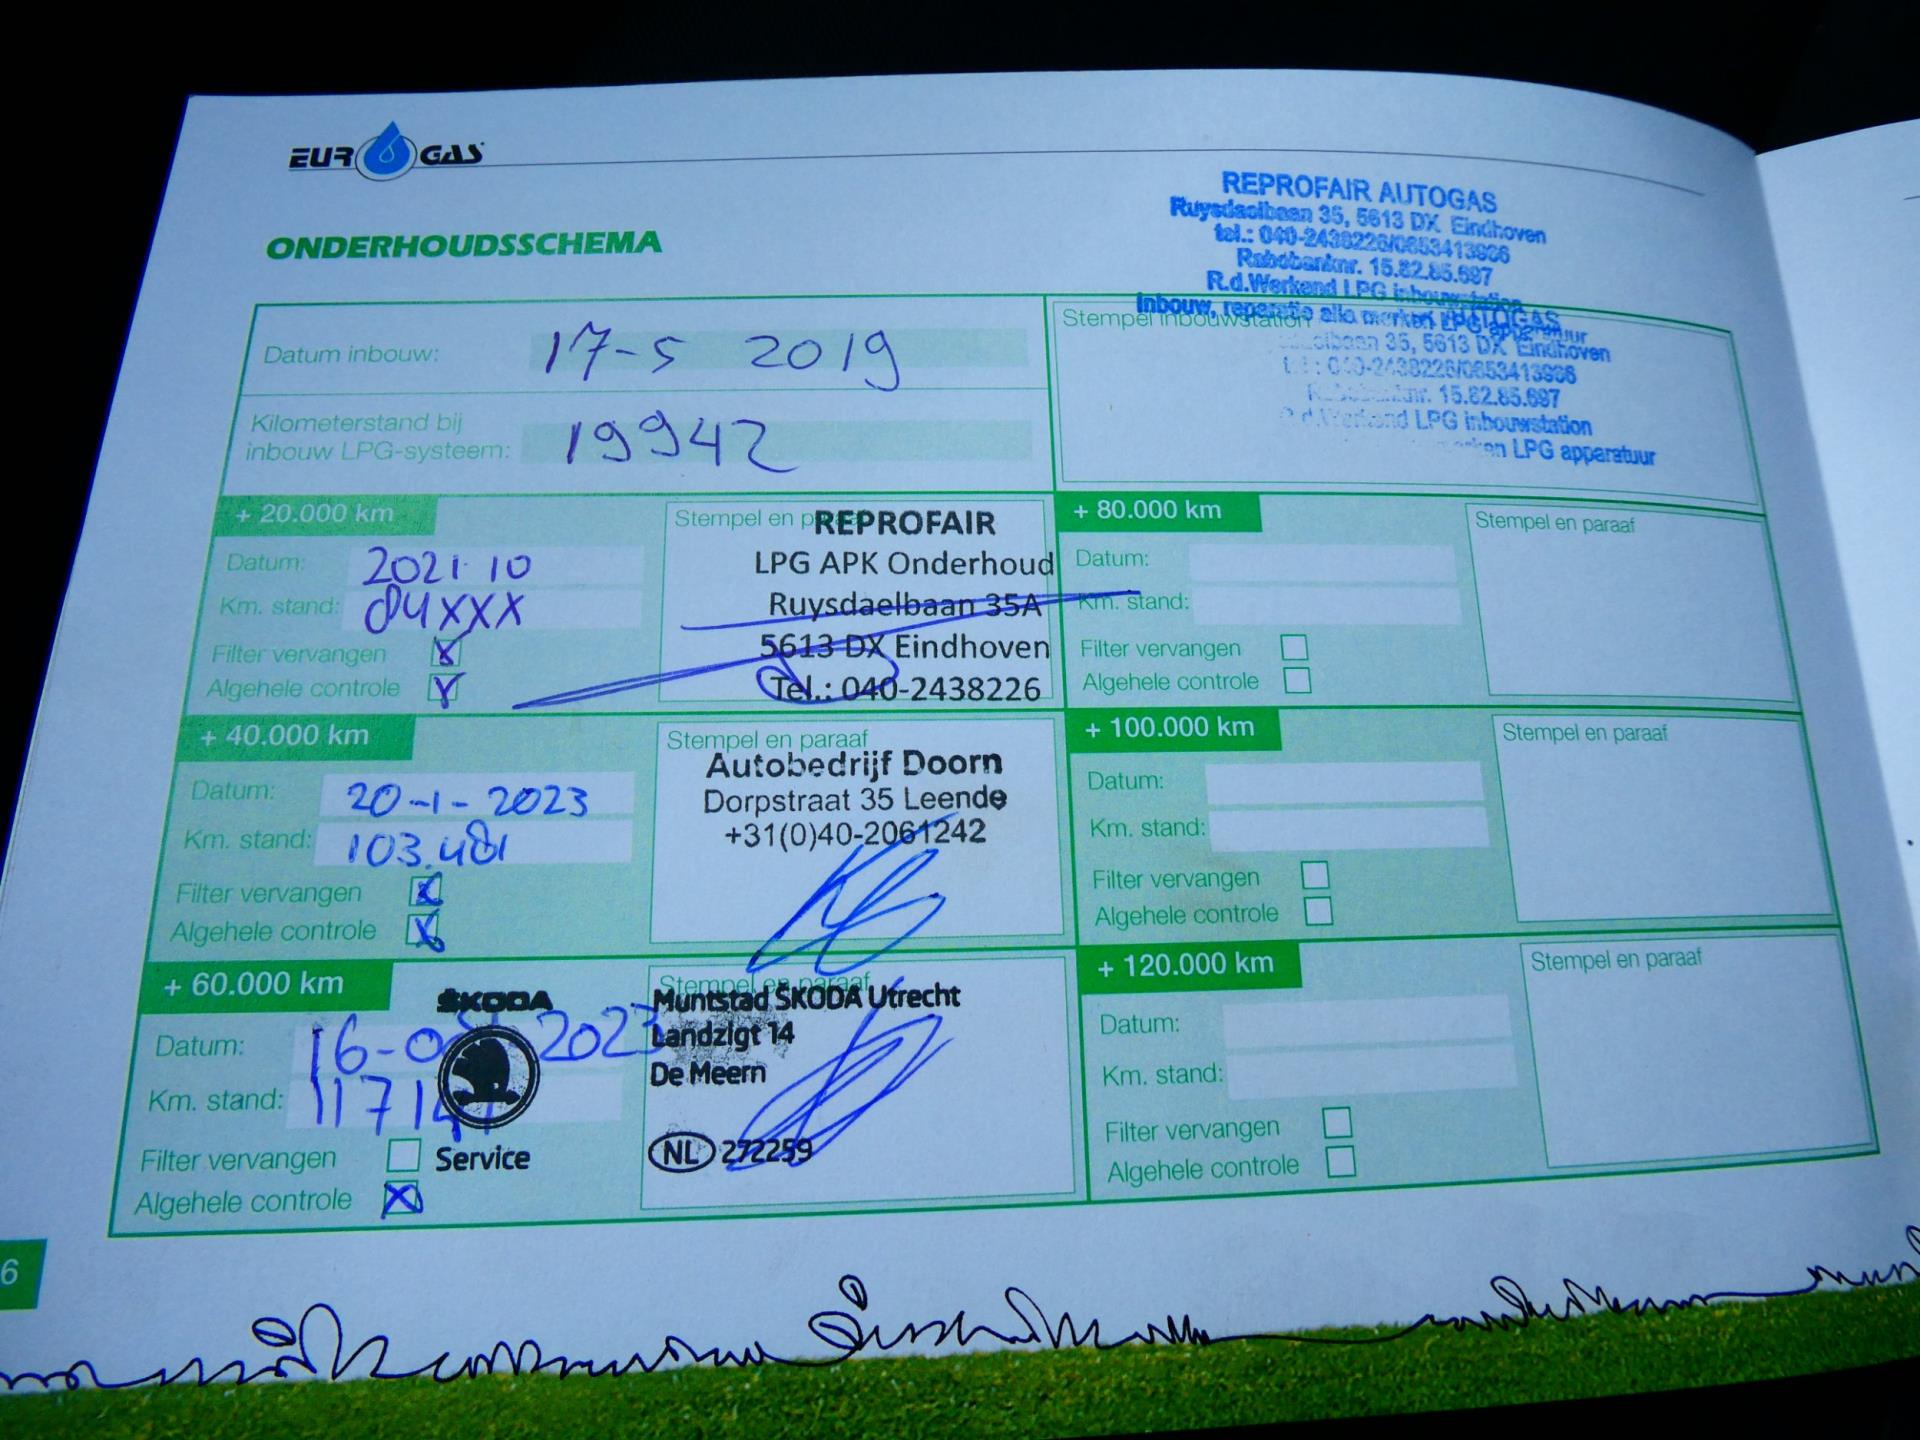 EUROGAS
ONDERHOUDSSCHEMA
REPROFAIR AUTOGAS
Ruysdaelbaan 35, 5613 DX Eindhoven
tel.: 040-2438226/0653413986
Rabobanknr. 15.82.85.697
R.d.Werkend LPG inbouwstation
Inbouw, reparatie alle merken LPG apparatuur
Datum inbouw: 17-5 2019
Kilometerstand bij
inbouw LPG-systeem: 19942
Stempel inbouwstation
AUTOGAS
35, 5613 DX Eindhoven
040-2438226/0653413986
15.82.85.697
R.d.Werkend LPG inbouwstation
merken LPG apparatuur
+ 20.000 km
Datum: 2021-10
Km. stand: 84XXX
Filter vervangen X
Algehele controle X
Stempel en paraaf
REPROFAIR
LPG APK Onderhoud
Ruysdaelbaan 35A
5613 DX Eindhoven
Tel.: 040-2438226
+ 40.000 km
Datum: 20-1-2023
Km. stand: 103.481
Filter vervangen X
Algehele controle X
Stempel en paraaf
Autobedrijf Doorn
Dorpstraat 35 Leende
+31(0)40-2061242
+ 60.000 km
Datum: 16- 2023
Km. stand:
Filter vervangen
Algehele controle X
ŠKODA
Service
Stempel en paraaf
Muntstad ŠKODA Utrecht
Landzigt 14
De Meern
NL 272259
+ 80.000 km
Datum:
Km. stand:
Filter vervangen
Algehele controle
Stempel en paraaf
+ 100.000 km
Datum:
Km. stand:
Filter vervangen
Algehele controle
Stempel en paraaf
+ 120.000 km
Datum:
Km. stand:
Filter vervangen
Algehele controle
Stempel en paraaf
6